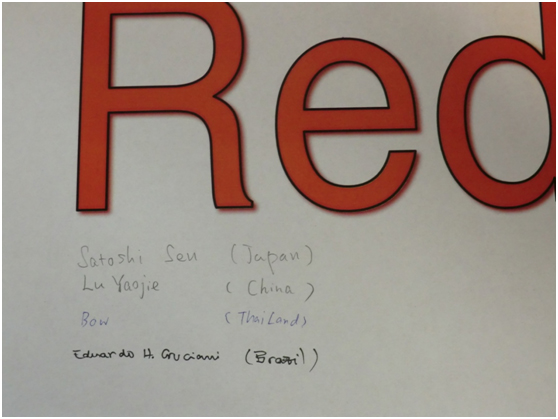 Red
Satoshi Sen (Japan)
Lu Yaojie (China)
Bow (Thailand)
Eduardo H. Cruciani (Brazil)